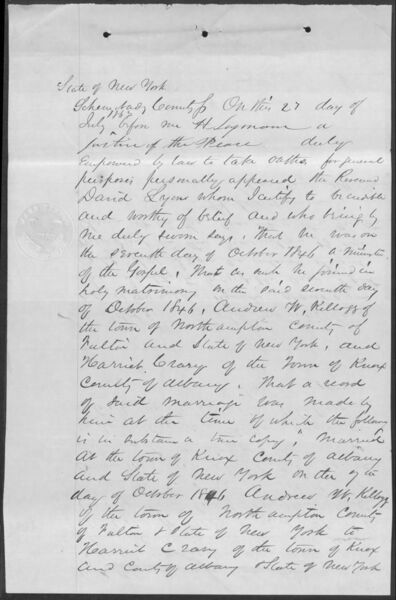 State of New York
Schenectady County ss On this 27 day of
July 1867 before me H
Justice of the Peace duly
Empowered by law to take oaths for general
purposes personally appeared the Reverend
David Lyons whom I certify to be credible
and worthy of belief and who being by
me duly sworn says, that he was on
the seventh day of October 1846 a minister
of the Gospel, That as such he joined in
holy matrimony on the said seventh day
of October 1846, Andrew W. Kellogg of
the town of Northampton County of
Fulton and State of New York, and
Harriet Crary of the Town of Knox
County of Albany. That a record
of said marriage was made by
him at the time of which the following
is in substance a true copy, "Married
At the town of Knox County of Albany
and State of New York on the 7th
day of October 1846 Andrew W. Kellogg
of the town of Northampton County
of Fulton & State of New York to
Harriet Crary of the town of Knox
and County of Albany & State of New York